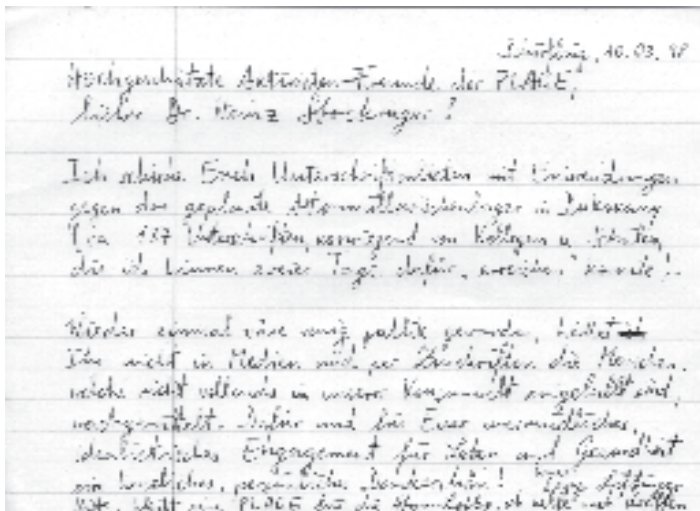 10.03.98
Hochgeschätzte Aktivisten-Freunde der PLAGE,
lieber Dr. Heinz Stockinger!
Ich schicke Euch Unterschriftenlisten mit Einwendungen
gegen das geplante Atommüllzwischenlager in
187 Unterschriften, vorwiegend von Kollegen u.
die ich binnen zweier Tage dafür „erreichen" konnte!
Wieder einmal wäre wenig publik geworden, hättet
Ihr nicht in Medien und per Zuschriften die Menschen,
welche nicht vollends in unserer eingelullt sind,
wachgerüttelt. Dafür und für Euer unermüdliches,
idealistisches Engagement für Leben und Gesundheit
ein herzliches, persönliches Dankeschön!
PLAGE die